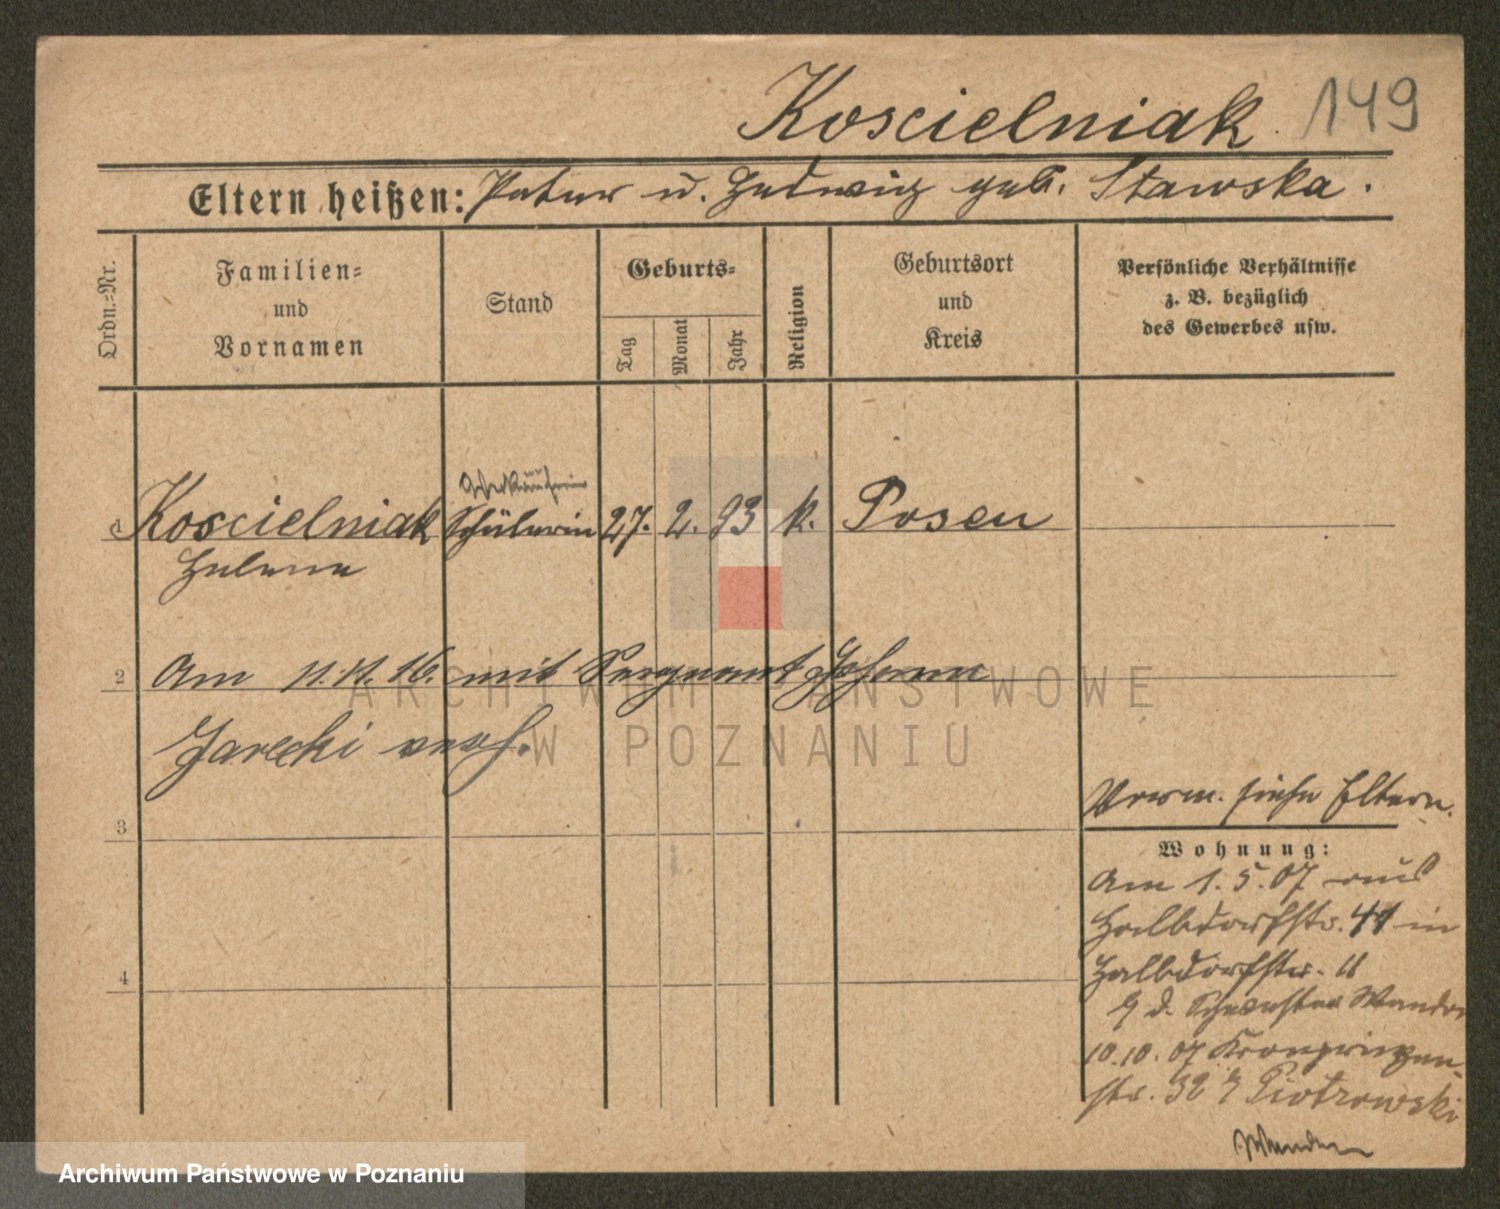 Koscielniak 149
Eltern heißen: Peter u. Hedwig geb. Stawska.
Ordn.=Nr.
Familien=
und
Vornamen
Stand
Geburts=
Tag
Monat
Jahr
Religion
Geburtsort
und
Kreis
Persönliche Verhältnisse
z. B. bezüglich
des Gewerbes usw.
1 Koscielniak Schülerin 27. 2. 93 k. Posen
Helene
2 Am 11.11.16. mit Sergeant Johann
Jarecki verh.
3
4
Verm. siehe Eltern.
Wohnung:
Am 1.5.07 aus
Halbdorfstr. 41 in
Halbdorfstr. 11
d. Schwester
10.10.07 Kronprinzen-
str. 32 Piotrowski
ARCHIWUM PAŃSTWOWE
W POZNANIU
Archiwum Państwowe w Poznaniu